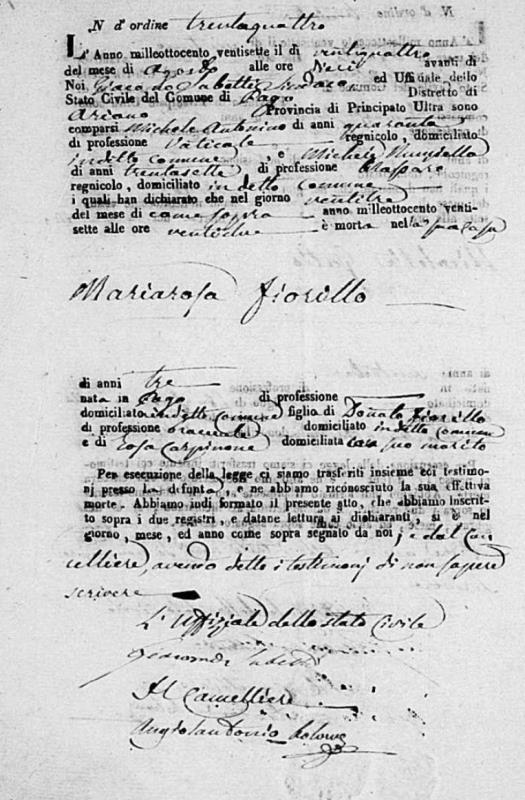 N d'ordine trentaquattro
L'Anno milleottocento ventisette il dì ventiquattro
del mese di Agosto alle ore Dieci avanti di
Noi Sabetti Sindaco ed Uffiziale dello
Stato Civile del Comune di Pago Distretto di
Ariano Provincia di Principato Ultra sono
comparsi Michele Antonino di anni quaranta
di professione Vaticale regnicolo, domiciliato
in detto comune, e Michele
di anni trentasette di professione
regnicolo, domiciliato in detto comune
i quali han dichiarato che nel giorno ventitre
del mese di come sopra anno milleottocento venti-
sette alle ore ventidue è morta nella sua casa
Mariarosa Fiorillo
di anni tre
nata in Pago di professione
domiciliato in detto comune figlia di Donato Fiorillo
di professione bracciale domiciliato in detto comune
e di Rosa Carpinone domiciliata con suo marito
Per esecuzione della legge ci siamo trasferiti insieme coi testimo-
nj presso la defunta, e ne abbiamo riconosciuto la sua effettiva
morte. Abbiamo indi formato il presente atto, che abbiamo inscrit-
to sopra i due registri, e datane lettura ai dichiaranti, si è nel
giorno, mese, ed anno come sopra segnato da noi, e dal Can
celliere, avendo detto i testimonj di non sapere
scrivere
L'Uffiziale dello stato Civile
Sabetti
Il Cancelliere
Angiolantonio